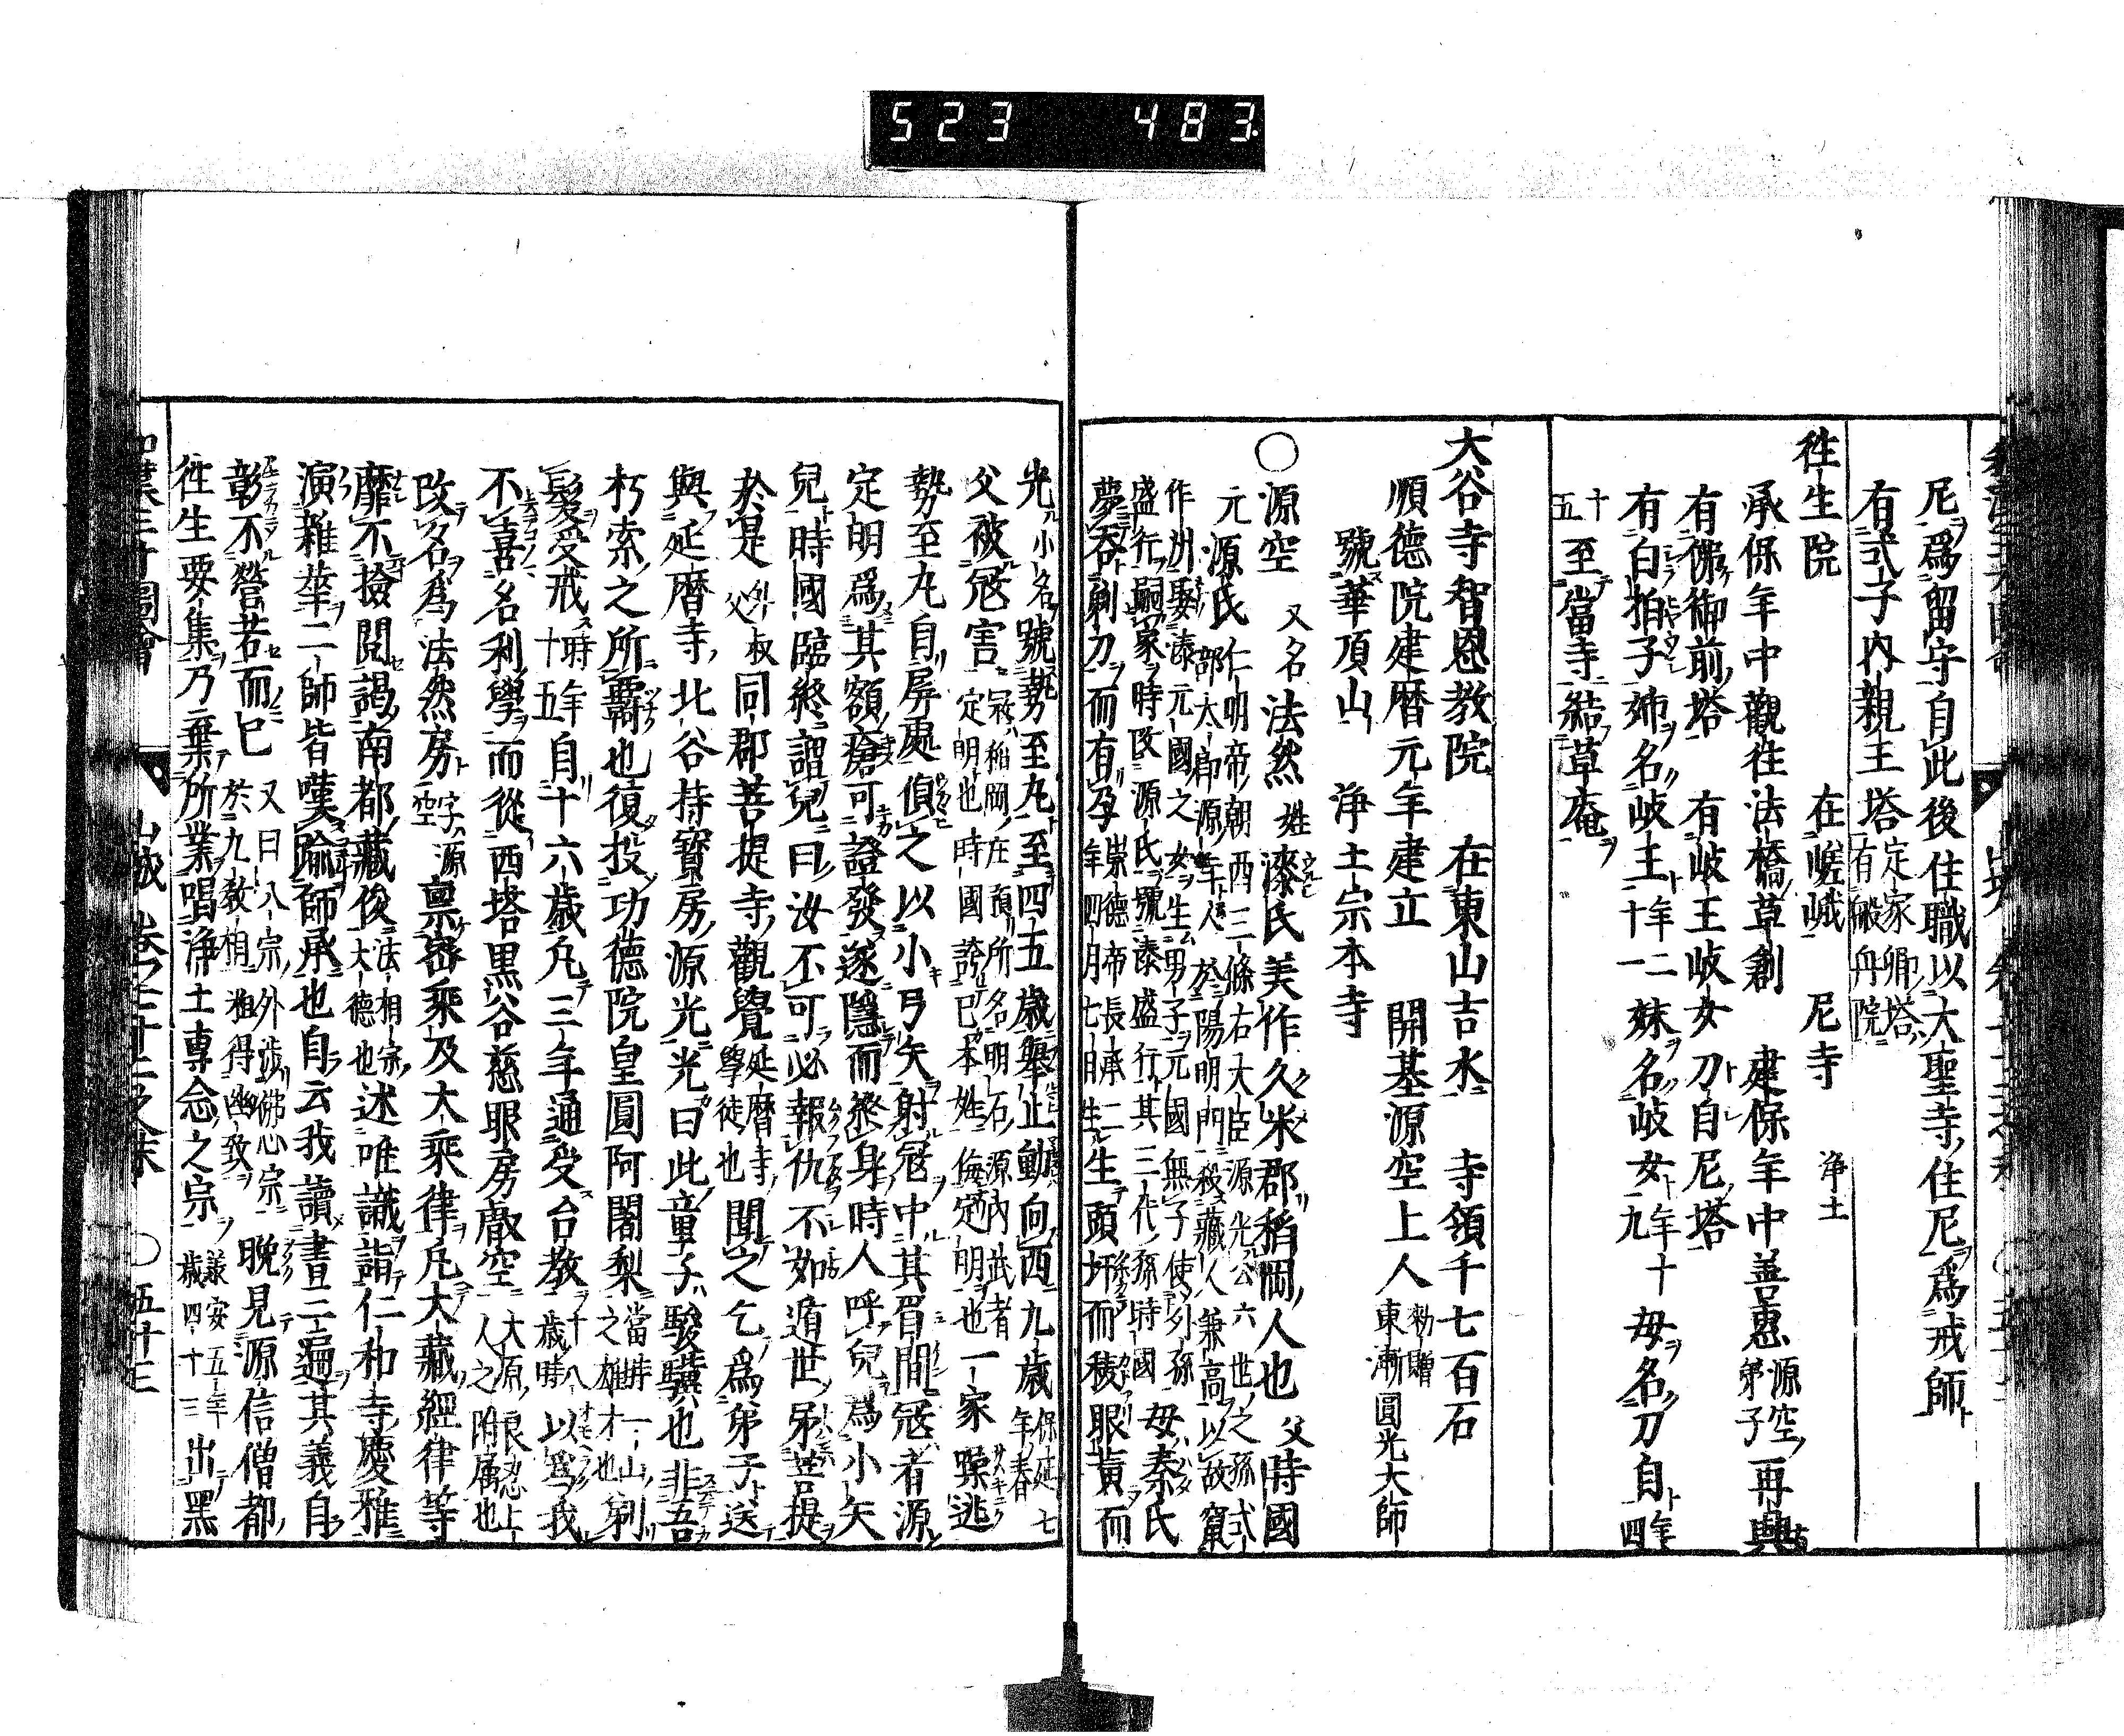 523 483
尼爲留守自此後住職以大聖寺住尼爲戒師
有式子內親王塔 定家卿塔 有般舟院
往生院 在嵯峨 尼寺 淨土
承保年中觀往法橋草創 建保年中善惠 源空弟子 再興
有佛御前塔 有岐王岐女刀自尼塔
有白拍子姉名岐王 年二十一 妹名岐女 年十九 母名刀自 年四
十五 至當寺結草庵
大谷寺智恩教院 在東山吉水 寺領千七百石
順德院建曆元年建立 開基源空上人 勅贈東漸 圓光大師
號華頂山 淨土宗本寺
○源空 又名法然 姓漆氏美作久米郡稻岡人也 父時國
元源氏 仁明帝朝西三條右大臣源光公六世之孫式
部太郎源年人於陽明門殺藏人兼高以故竄
作洲娶漆元國之女生男子元國無子使外孫 母秦氏
盛行嗣家時改源氏號漆盛行其三代孫時國
夢吞剃刀而有孕 崇德帝長承二年四月七日生 生頭圩而稜眼黃而
光小名號勢至丸至四五歲舉止動向西九歲 保延七年春
父被寇害 寇稻岡在預所名明石源內武者定明也時國誇已本姓侮定明也 一家躁逃
勢至丸自屏處偵之以小弓矢射寇中其眉間寇者源
定明爲其額瘡可證發遂隱而終身時人呼兒爲小矢
兒時國臨終詔兒曰汝不可必報仇不如遁世求菩提
於是 外叔父 同郡菩提寺觀覺 延曆寺學徒也 聞之乞爲弟子送
與延曆寺北谷持寶房源光光曰此童子駿驥也非吾
朽索之所覊也復投功德院皇圓阿闍梨 當時一山之雄才也 剃
髮受戒 時年十五 自十六歲凡三年通受台教 十八歲時 以爲我
不喜名利學而從西塔黑谷慈眼房叡空 大原良忍上人之附屬也
改名爲法然房 字源空 稟密乘及大乘律凡大藏經律等
靡不撿閱謁南都藏俊 法相宗大德也 述唯識詣仁和寺慶雅
演雜華二師皆嘆踰師承也自云我讀書三遍其義自
彰不營若而已 又曰八宗外涉佛心宗於九教相粗得幽致 晚見源信僧都
往生要集乃棄所業唱淨土專念之宗 承安五年歲四十三 出黑
山城 卷七十二之末 ○五十三